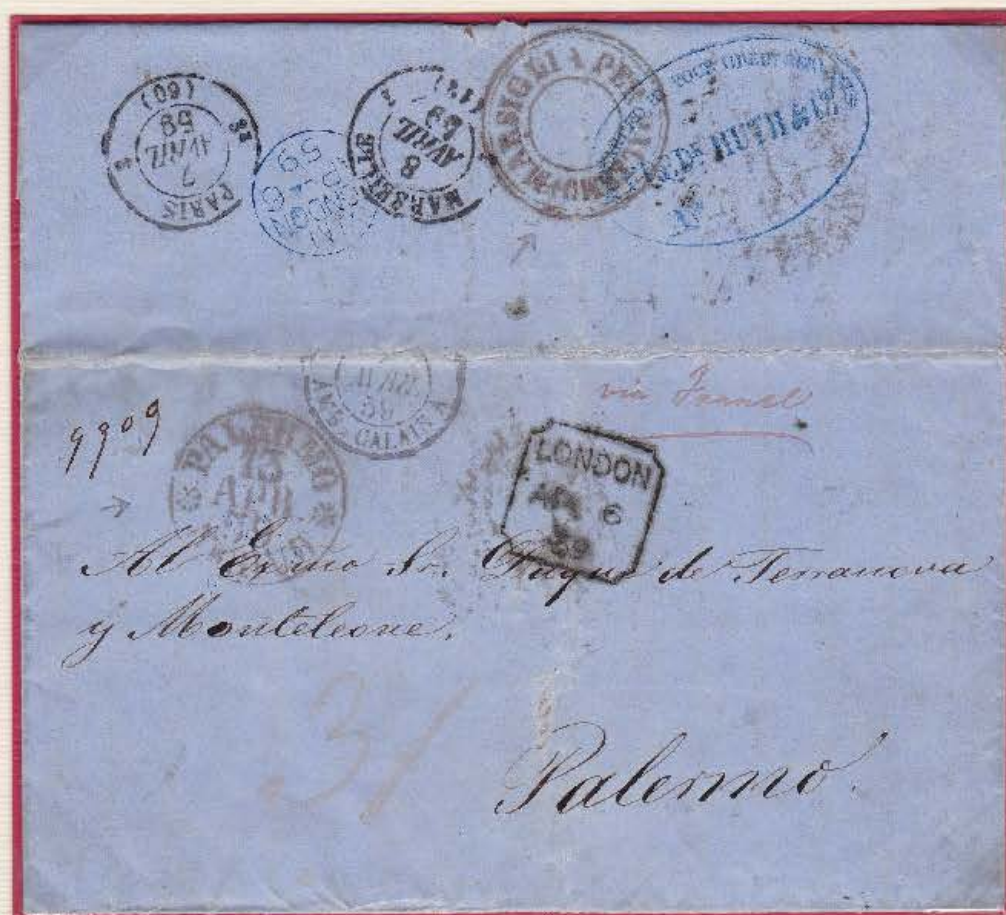 PARIS
7
AVRIL
59
(60)
LONDON
59
MARSEILLE
8
AVRIL
59
MARSIGLIA PER PALERMO
FREDK HUTH & Co
AVRIL
59
CALAIS A
via France
9909
PALERMO
15
APR
LONDON
AP 6
59
Al Exmo Sr. Duque de Terranova
y Monteleone.
31
Palermo.